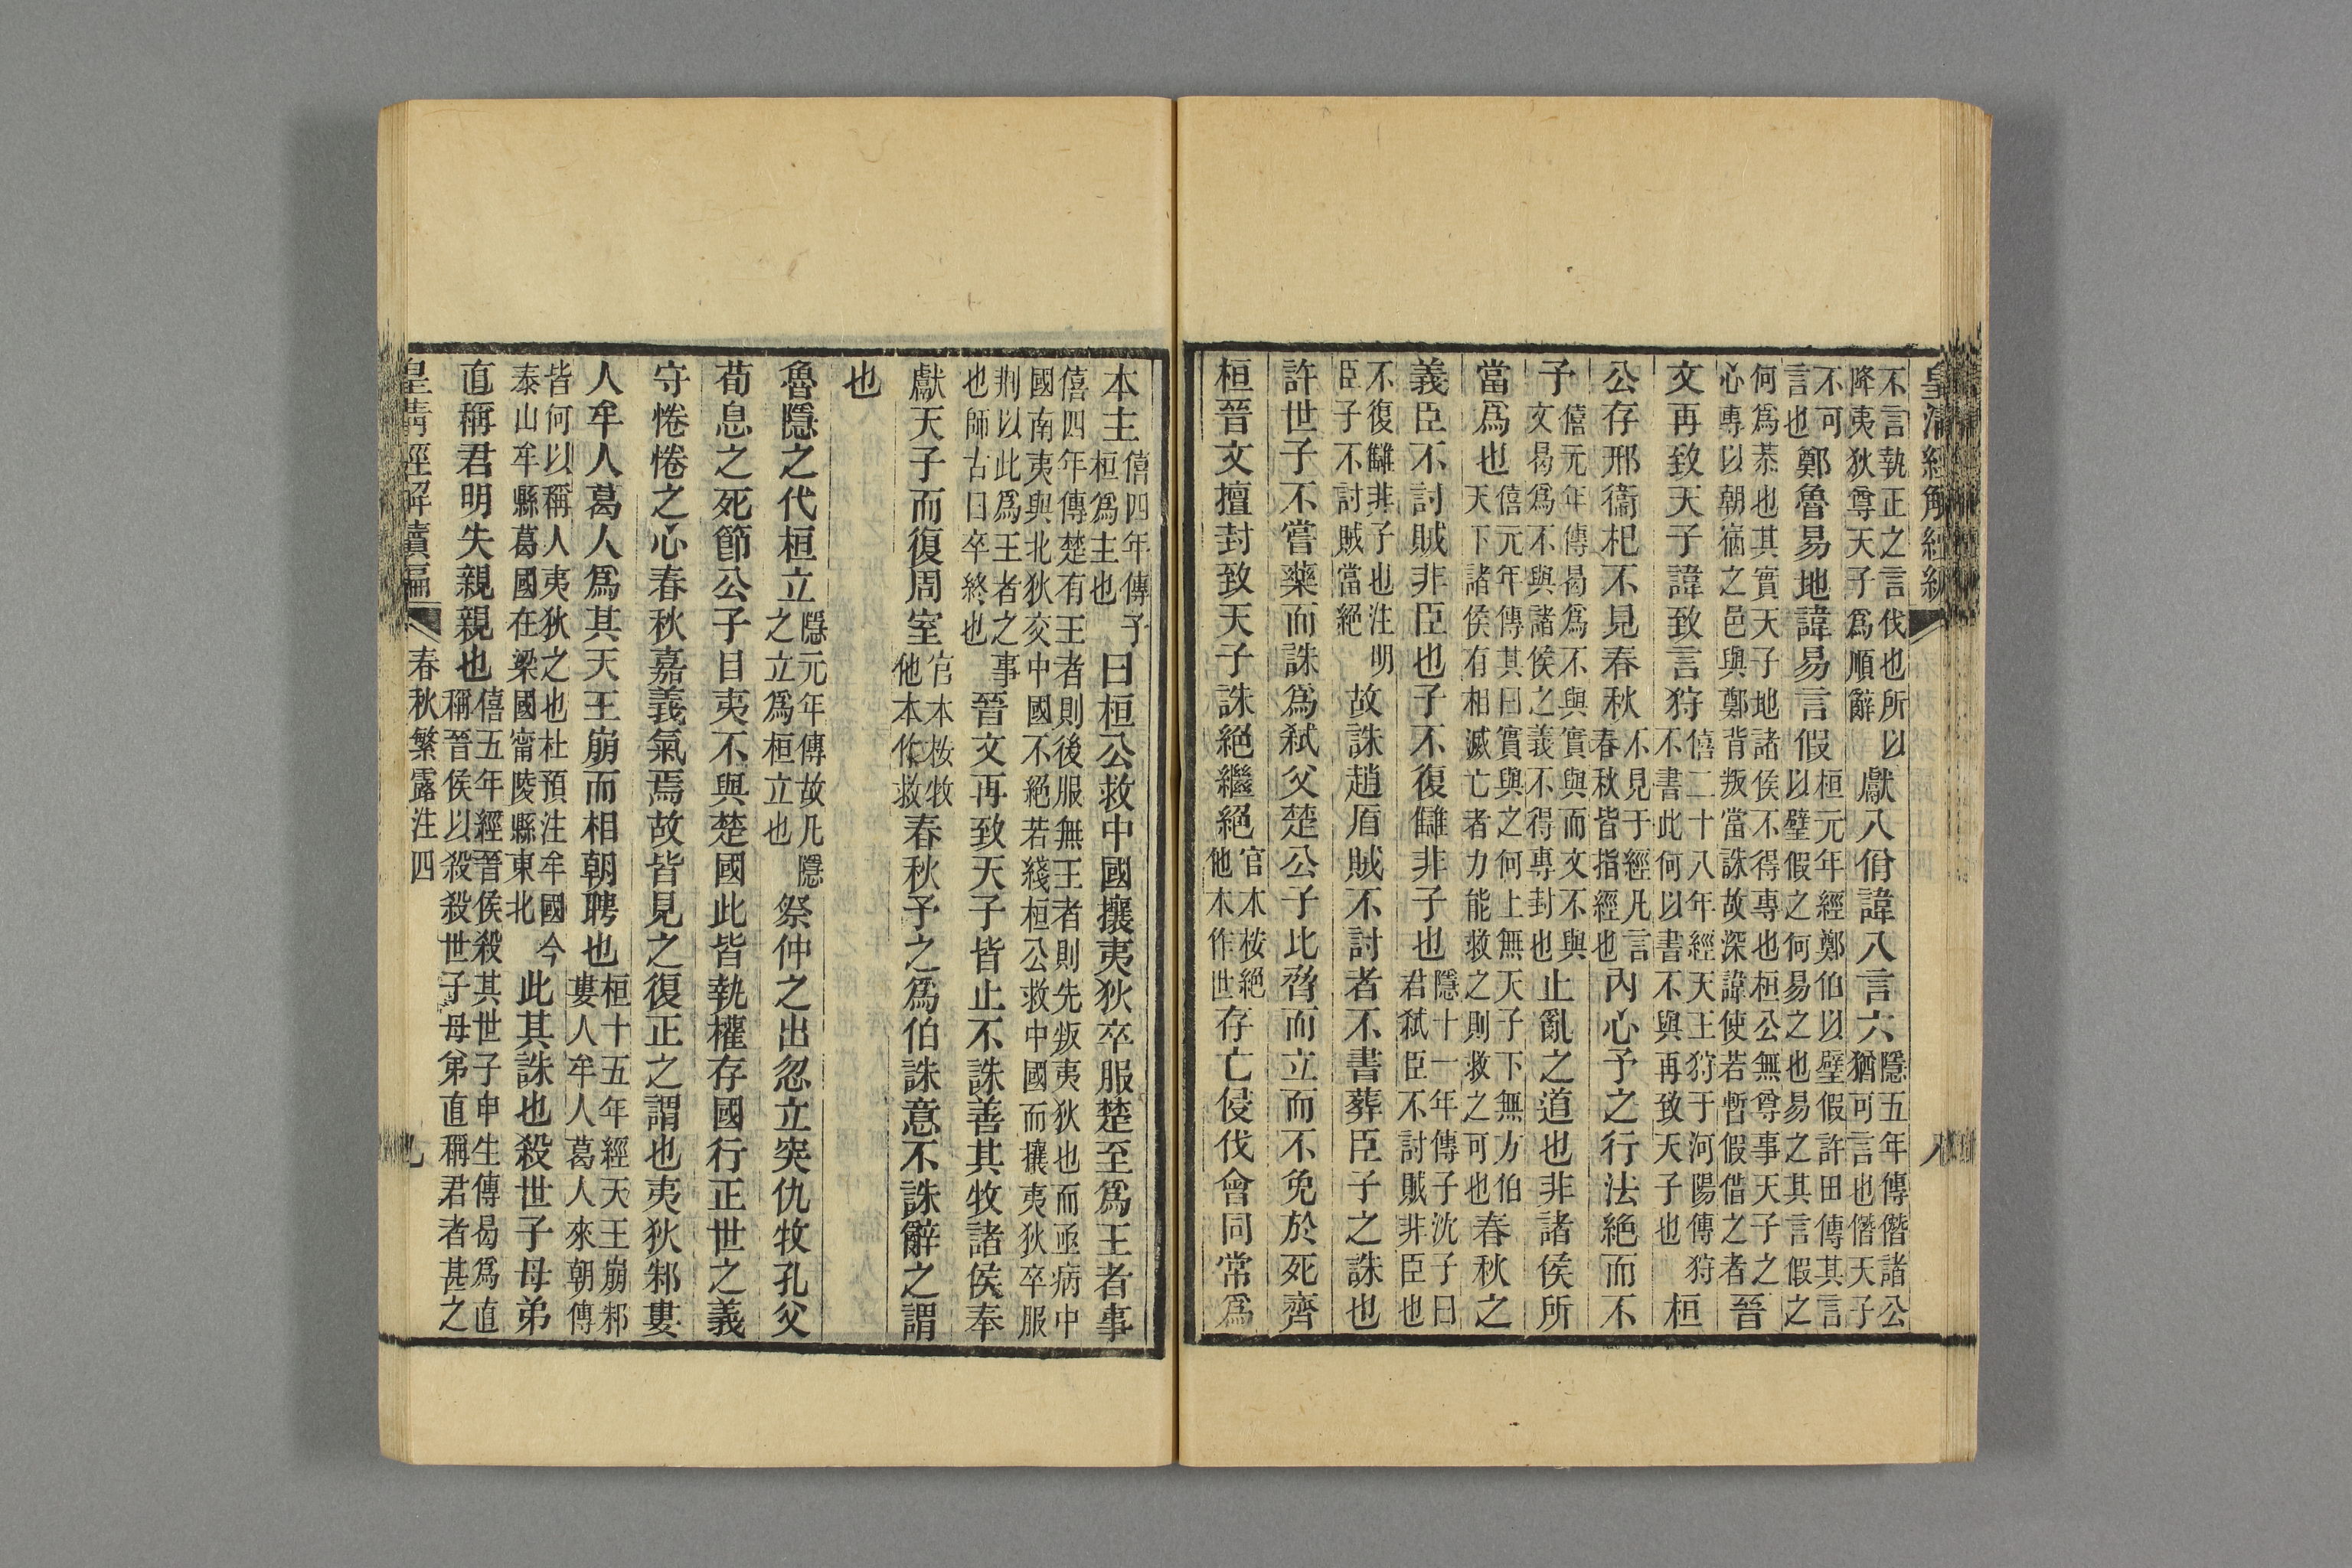 皇清經解續編 八
不言執正之言伐也所以
降夷狄尊天子爲順辭
獻八佾諱八言六
隱五年傳僭諸公
猶可言也僭天子
不可
言也
鄭魯易地諱易言假
桓元年經鄭伯以璧假許田傳其言
以璧假之何易之也易之其言假之
何爲恭也其實天子地諸侯不得專也桓公無尊事天子之
心專以朝宿之邑與鄭背叛當誅故深諱使若暫假借之者
晉
文再致天子諱致言狩
僖二十八年經天王狩于河陽傳狩
不書此何以書不與再致天子也
桓
公存邢衞杞不見春秋
不見于經凡言
春秋皆指經也
內心予之行法絕而不
予
僖元年傳曷爲不與實與而文不與
文曷爲不與諸侯之義不得專封也
止亂之道也非諸侯所
當爲也
僖元年傳其曰實與之何上無天子下無方伯
天下諸侯有相滅亡者力能救之則救之可也
春秋之
義臣不討賊非臣也子不復讎非子也
隱十一年傳子沈子曰
君弒臣不討賊非臣也
不復讎非子也注明
臣子不討賊當絕
故誅趙盾賊不討者不書葬臣子之誅也
許世子不嘗藥而誅爲弒父楚公子比脅而立而不免於死齊
桓晉文擅封致天子誅絕繼絕
官本桉絕
他本作世
存亡侵伐會同常爲
本主
僖四年傳子
桓爲主也
曰桓公救中國攘夷狄卒服楚至爲王者事
僖四年傳楚有王者則後服無王者則先叛夷狄也而亟病中
國南夷與北狄交中國不絕若綫桓公救中國而攘夷狄卒服
荆以此爲王者之事
也師古曰卒終也
晉文再致天子皆止不誅善其牧諸侯奉
獻天子而復周室
官本桉牧
他本作救
春秋予之爲伯誅意不誅辭之謂
也
魯隱之代桓立
隱元年傳故凡隱
之立爲桓立也
祭仲之出忽立突仇牧孔父
荀息之死節公子目夷不與楚國此皆執權存國行正世之義
守惓惓之心春秋嘉義氣焉故皆見之復正之謂也夷狄邾婁
人牟人葛人爲其天王崩而相朝聘也
桓十五年經天王崩邾
婁人牟人葛人來朝傳
皆何以稱人夷狄之也杜預注牟國今
泰山牟縣葛國在梁國甯陵縣東北
此其誅也殺世子母弟
直稱君明失親親也
僖五年經晉侯殺其世子申生傳曷爲直
稱晉侯以殺殺世子母弟直稱君者甚之
皇清經解續編 春秋繁露注四 九